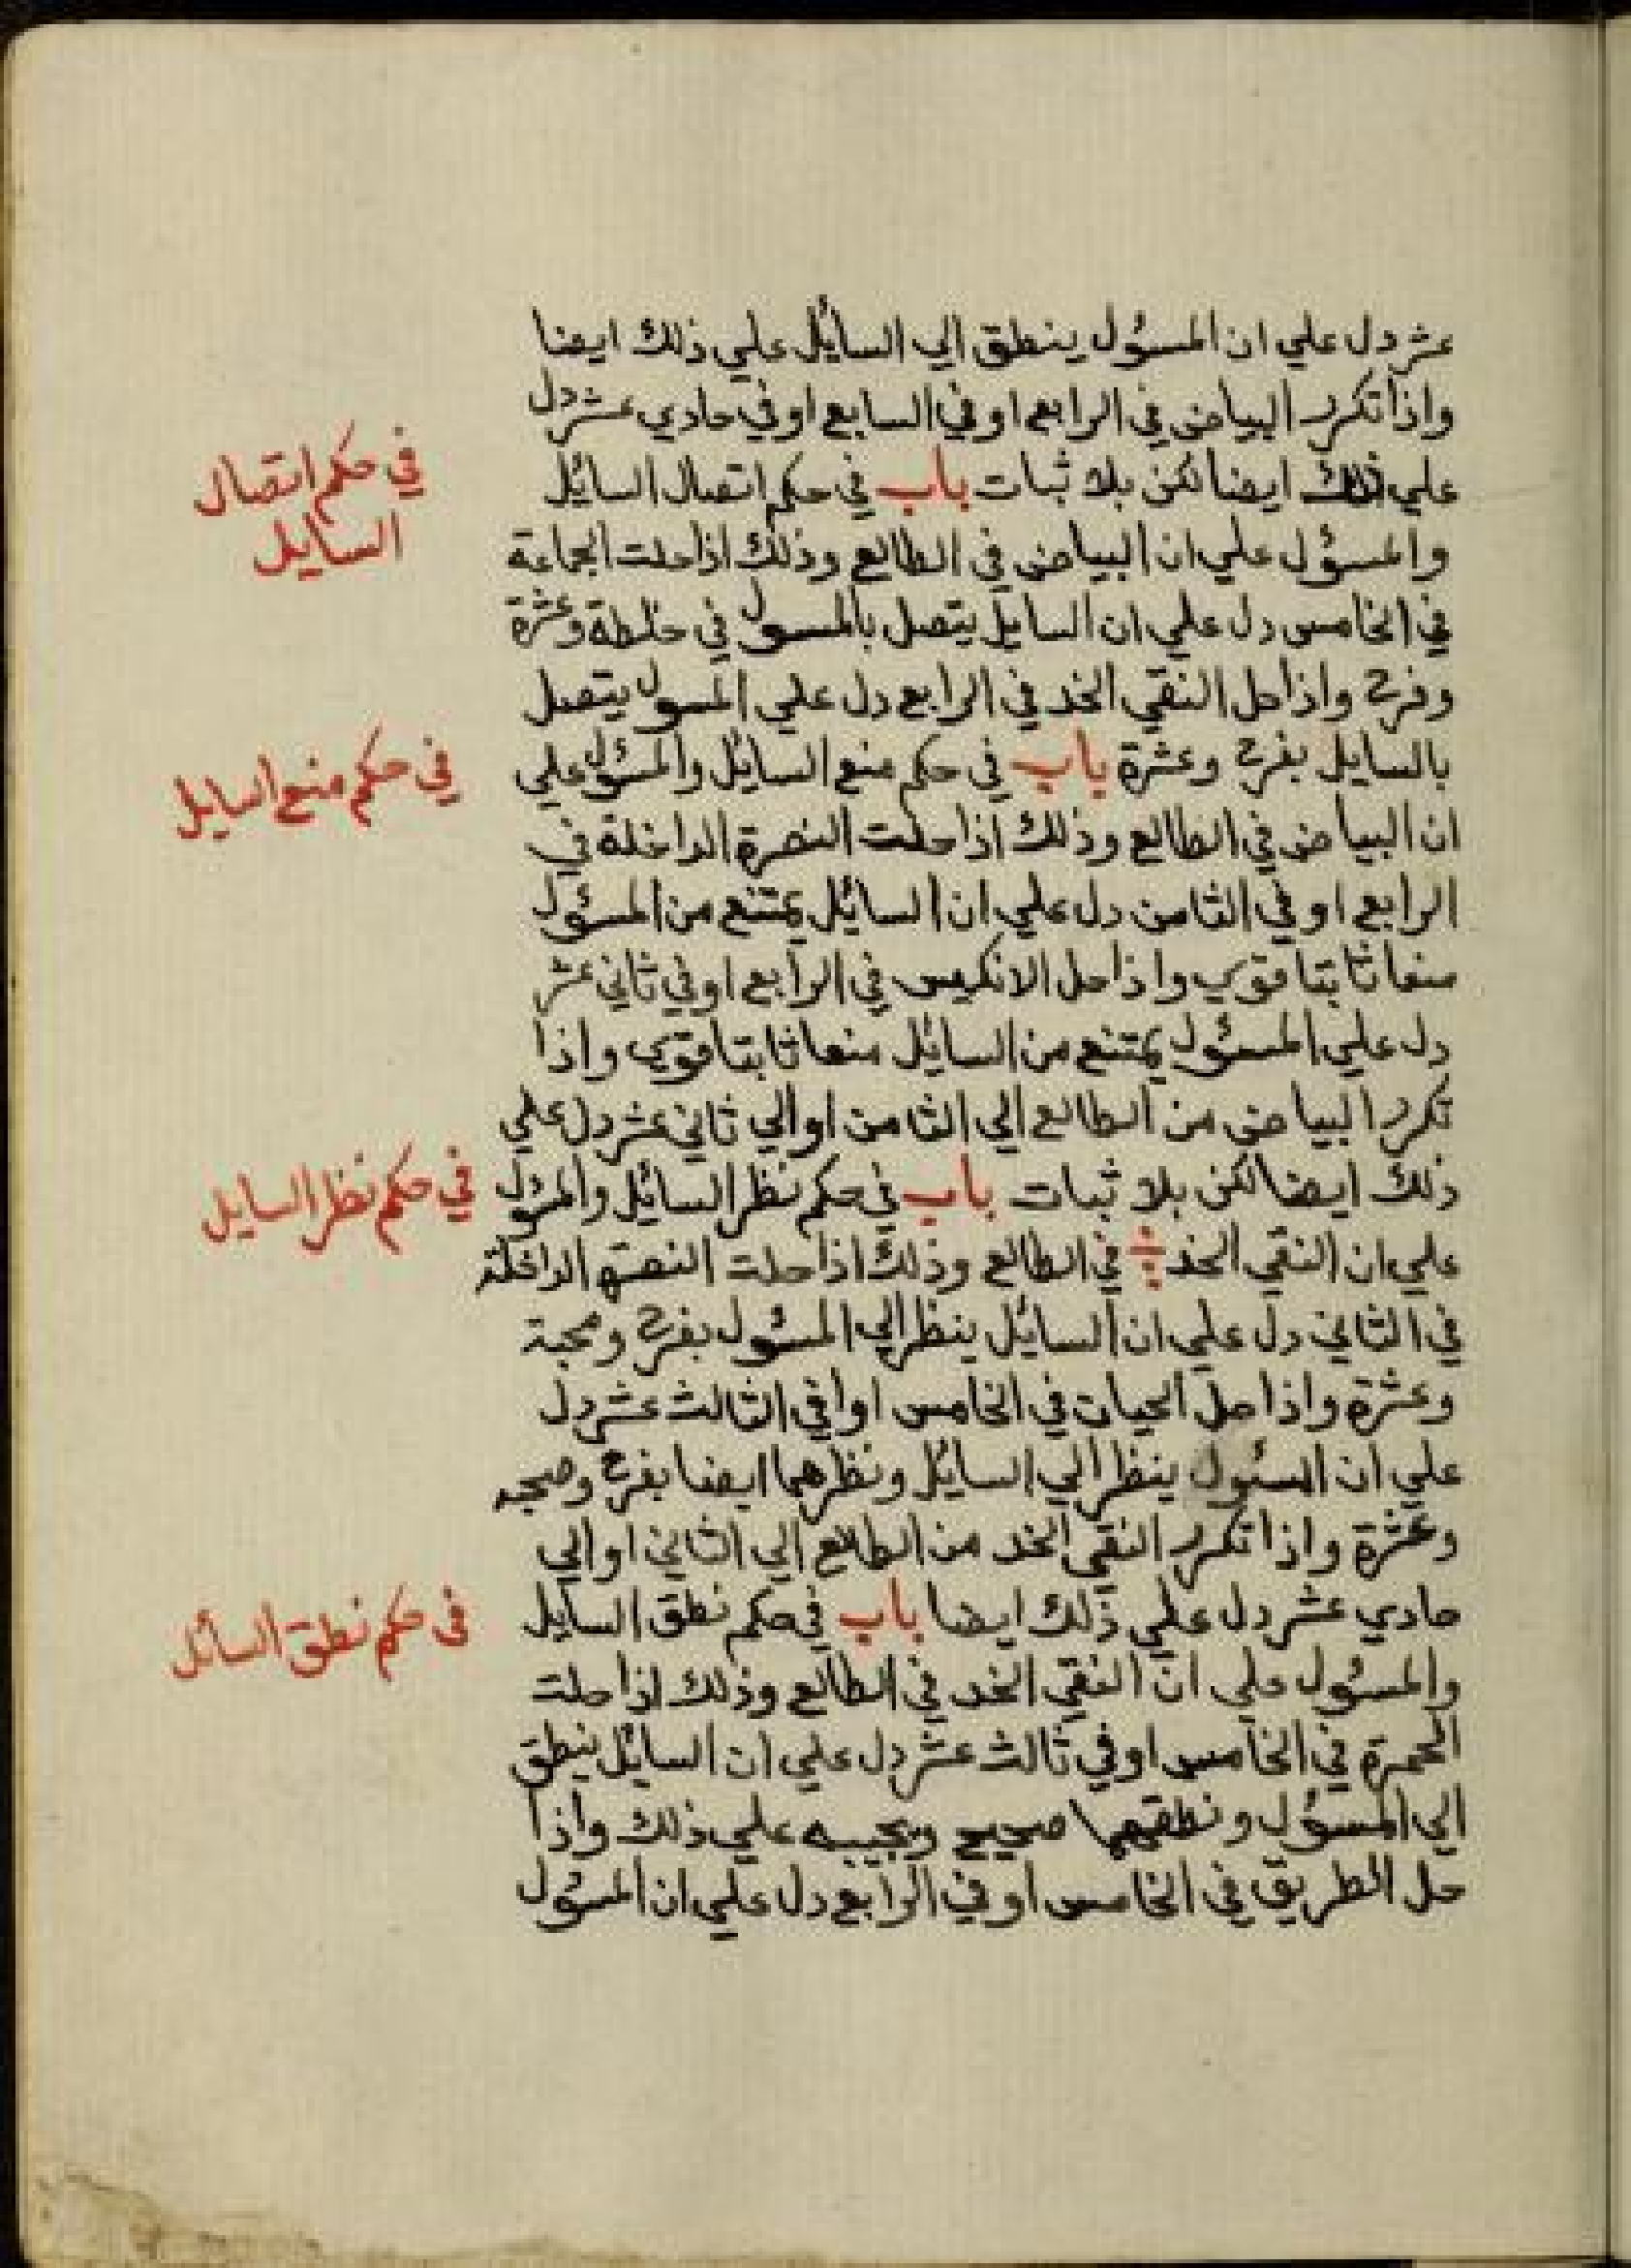 عشر دل علي ان المسؤل ينطق الي السائل علي ذلك ايضا
واذا تكرر البياض في الرابع او في السابع او في حادي عشر دل
علي ذلك ايضا لكن بلا ثبات باب في حكم اتصال السائل
في حكم اتصال
السايل
والمسؤل علي ان البياض في الطالع وذلك اذا حلت الجماعة
في الخامس دل علي ان السايل يتصل بالمسول في خلطة وعشرة
وفرح واذا حل النقي الخد في الرابع دل علي المسول يتصل
بالسايل بفرح وعشرة باب في حكم منع السائل والمسؤل علي
في حكم منع السايل
ان البياض في الطالع وذلك اذا حلت النصرة الداخلة في
الرابع او في الثامن دل علي ان السائل يمتنع من المسئول
منعا ثابتا قوي واذا حل الانكيس في الرابع او في ثاني عشر
دل علي المسئول يمتنع من السائل منعا ثابتا قوي واذا
تكرر البياض من الطالع الي الثامن او الي ثاني عشر دل علي
ذلك ايضا لكن بلا ثبات باب في حكم نظر السائل والمئول
في حكم نظر السايل
علي ان النقي الخد في الطالع وذلك اذا حلت النصرة الداخلة
في الثاني دل علي ان السائل ينظر الي المسئول بفرح ومحبة
وعشرة واذا حل الحيان في الخامس او افي الثالث عشر دل
علي ان السئول ينظر الي السائل ونظرهما ايضا بفرح وصحبه
وعشرة واذا تكرر النقي الخد من الطالع الي الثاني او الي
حادي عشر دل علي ذلك ايضا باب في حكم نطق السايل
في حكم نطق السائل
والمسؤل علي ان النقي الخد في الطالع وذلك اذا حلت
الحمرة في الخامس او في ثالث عشر دل علي ان السائل ينطق
الي المسؤل ونطقهما صحيح ويجيبه علي ذلك واذا
حل الطريق في الخامس او في الرابع دل علي ان المسؤل